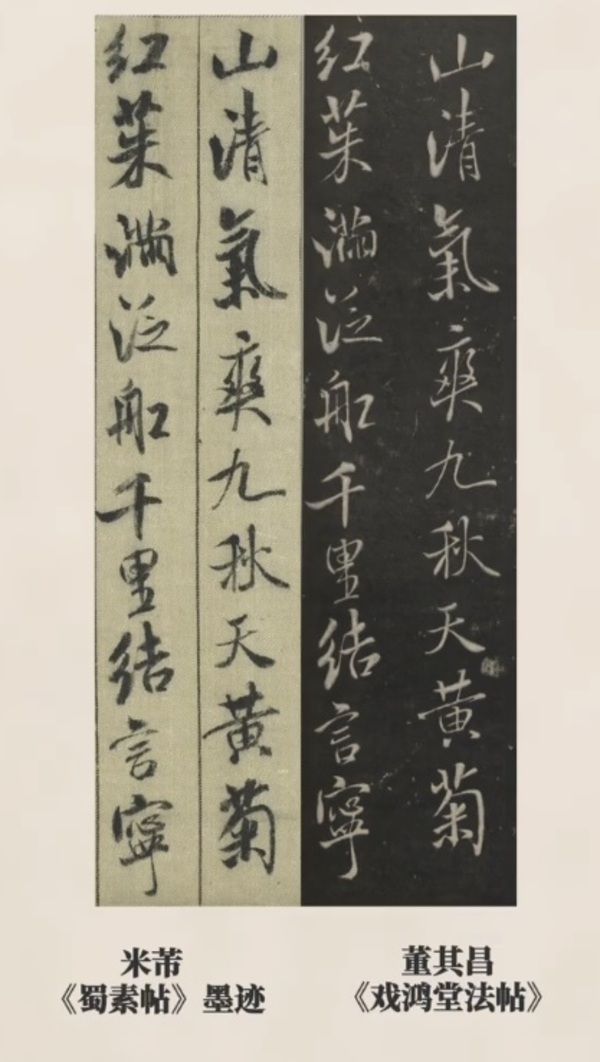 山清氣爽九秋天黃菊
紅茱滿泛舡千里結言寧
山清氣爽九秋天黃菊
紅茱滿泛舡千里結言寧
米芾
《蜀素帖》墨迹
董其昌
《戏鸿堂法帖》